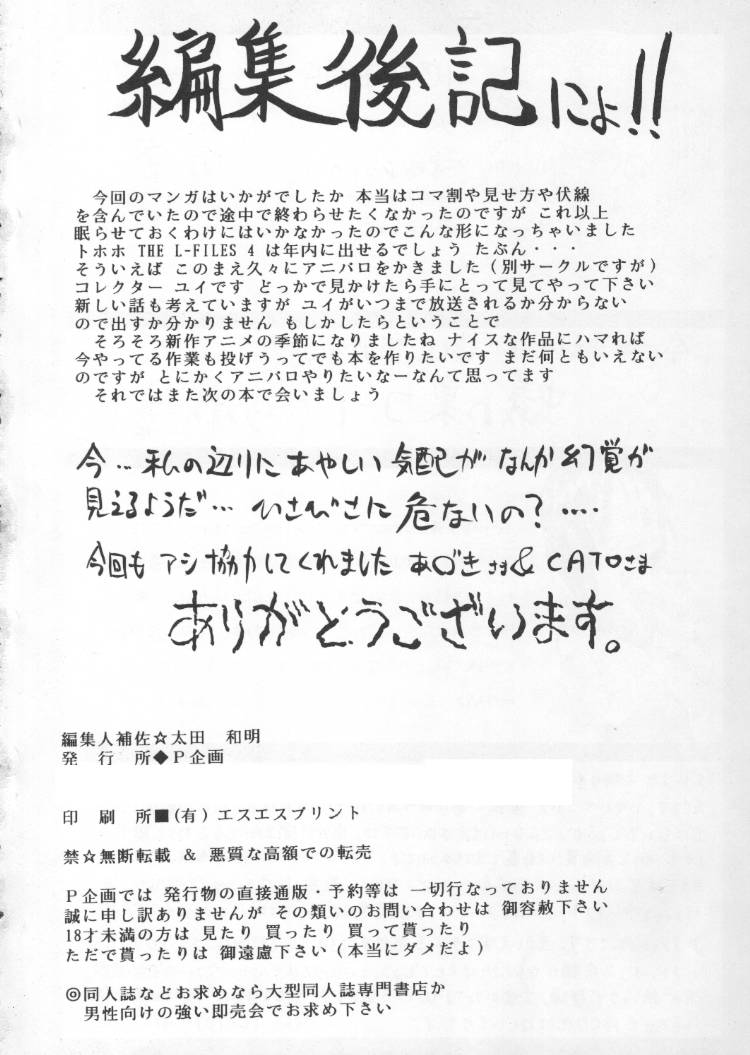 編集後記にょ!!
今回のマンガはいかがでしたか 本当はコマ割や見せ方や伏線
を含んでいたので途中で終わらせたくなかったのですが これ以上
眠らせておくわけにはいかなかったのでこんな形になっちゃいました
トホホ THE L-FILES 4 は年内に出せるでしょう たぶん・・・
そういえば このまえ久々にアニパロをかきました(別サークルですが)
コレクター ユイです どっかで見かけたら手にとって見てやって下さい
新しい話も考えていますが ユイがいつまで放送されるか分からない
ので出すか分かりません もしかしたらということで
そろそろ新作アニメの季節になりましたね ナイスな作品にハマれば
今やってる作業も投げうってでも本を作りたいです まだ何ともいえない
のですが とにかくアニパロやりたいなーなんて思ってます
それではまた次の本で会いましょう
今… 私の辺りにあやしい気配が なんか幻覚が
見えるようだ… ひさびさに危ないの?‥‥
今回も アシ協力してくれました あづきさま& CATOさま
ありがとうございます。
編集人補佐☆太田 和明
発 行 所◆P企画
印 刷 所■(有)エスエスプリント
禁☆無断転載 & 悪質な高額での転売
P企画では 発行物の直接通販・予約等は 一切行なっておりません
誠に申し訳ありませんが その類いのお問い合わせは 御容赦下さい
18才未満の方は 見たり 買ったり 買って貰ったり
ただで貰ったりは 御遠慮下さい(本当にダメだよ)
◎同人誌などお求めなら大型同人誌専門書店か
男性向けの強い即売会でお求め下さい